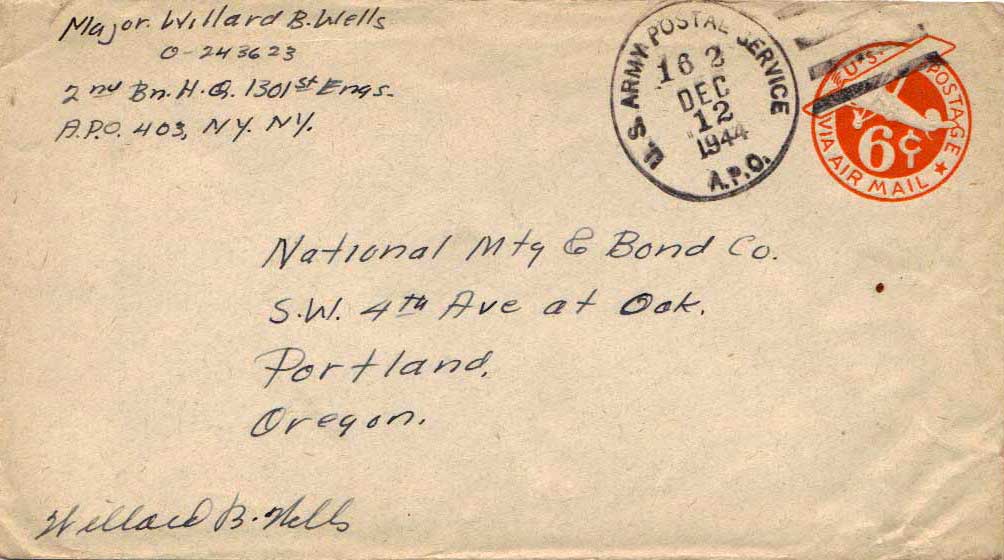 Major. Willard B. Wells
O-243623
2nd Bn. H.Q. 1301st Engs.
A.P.O. 403, NY. NY.
U.S. ARMY POSTAL SERVICE
16 2
DEC
12
1944
A.P.O.
U.S. POSTAGE
6¢
VIA AIR MAIL
National Mtg & Bond Co.
S.W. 4th Ave at Oak.
Portland,
Oregon.
Willard B. Wells